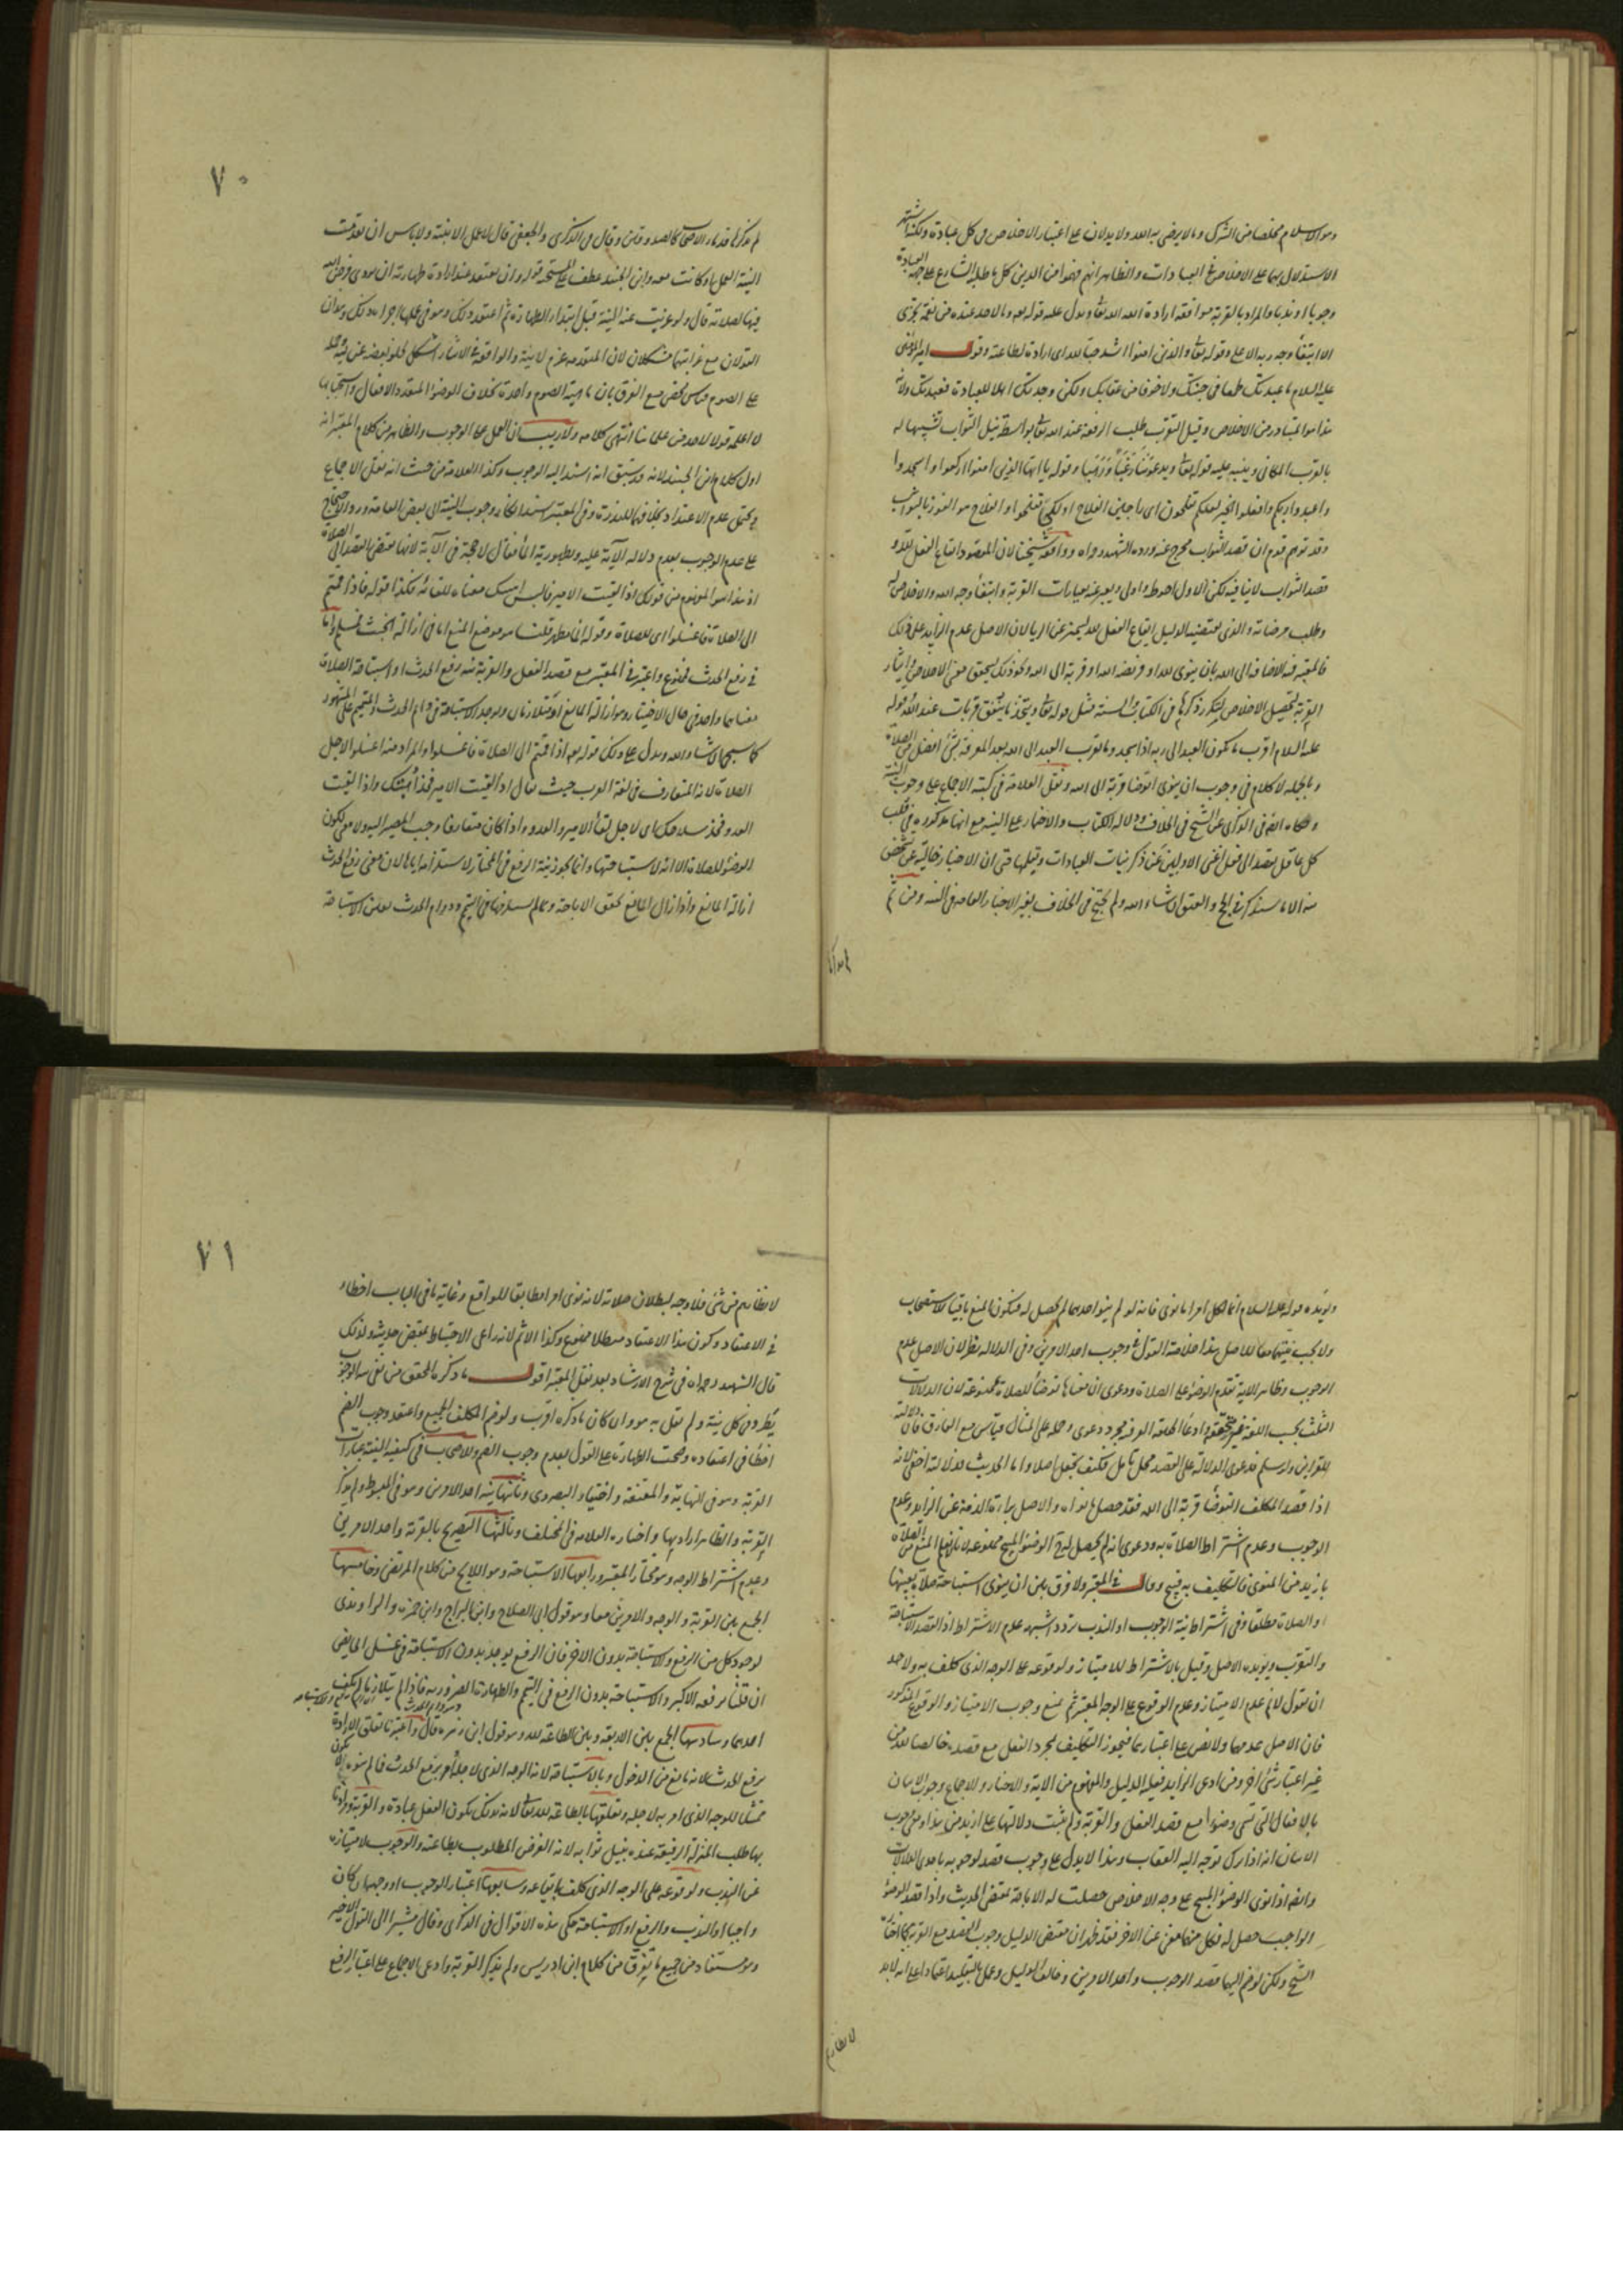 وهو الاسلام مخلصا من الشرك وما لا يرضى به الله ولا يدلان على اعتبار الاخلاص في كل عبادة ولكن اشتهر
الاستدلال بهما على الاخلاص في العبادات والظاهر انهم فهموا من الدين كل ما طلبه الشارع على جهة العبادة
وجوبا او ندبا والمراد بالقربة موافقة ارادة الله تعالى ويدل عليه قوله تعالى وما لاحد عنده من نعمة تجزى
الا ابتغاء وجه ربه الاعلى وقوله تعالى والذين امنوا اشد حبا لله اى ارادة لطاعته وقول امير المؤمنين
عليه السلام ما عبدتك طمعا في جنتك ولا خوفا من عقابك ولكن وجدتك اهلا للعبادة فعبدتك ولان
هذا هو المتبادر من الاخلاص وقيل التقرب طلب الرفعة عند الله تعالى بواسطة نيل الثواب تشبيها له
بالقرب المكانى وينبه عليه قوله تعالى ويدعوننا رغبا ورهبا وقوله يا ايها الذين امنوا اركعوا واسجدوا
واعبدوا ربكم وافعلوا الخير لعلكم تفلحون اى راجين الفلاح او لكى تفلحوا والفلاح هو الفوز بالثواب
وقد توهم قوم ان قصد الثواب مخرج عنه ورده الشهيد رواه ووافقه شيخنا لان المقصود ايقاع الفعل لله و
قصد الثواب لا ينافيه لكن الاول احوط واولى ويعبر عنه بعبارات القربة وابتغاء وجه الله والاخلاص له
وطلب مرضاته والذى يقتضيه الدليل ايقاع الفعل لله ليميز عن الريا لان الاصل عدم الزايد على ذلك
علیه السلام اقرب ما يكون العبد الى ربه اذا سجد وما تقرب العبد الى الله بعد المعرفة بشئ افضل من الصلاة
وبالجملة لا كلام في وجوب ان ينوى التوضا قربة الى الله ونقل العلامة في كتبه الاجماع على وجوب النية
كل عاقل يقصد الى فعل اغنى الاولين عن ذكر نيات العبادات وتعليمها حتى ان الاخبار خالية عن شخص
منه الا ما سنذكر في الحج والعتق ان شاء الله ولم يحتج في الخلاف بغير الاخبار العامة في النية ومن ثم
٧٠
لم يذكرها قدماء الاصحاب كالصدوقين وقال في الذكرى والجعفى قال لا عمل الا بنية ولا باس ان تقدمت
النية العمل او كانت معه وابن الجنيد عطف على المستحب قوله وان يعتقد عند ارادة طهارته ان يؤدى فرض الله
فيها لصلاته قال ولو عزبت عنه النية قبل ابتداء الطهارة ثم اعتقد ذلك وهو في عملها اجزاه ذلك وهذان
القولان مع غرابتهما مشكلان لان المتقدمة عزم لا نية والواقعة في الاثناء اشكل لخلو بعضه عن نية وحمله
على الصوم قياس محض مع الفرق بان ماهية الصوم واحدة بخلاف الوضوء المتعدد الافعال واستحبابها
لا اعلمه قولا لاحد من علمائنا انتهى كلامه ولا ريب ان العمل على الوجوب والظاهر من كلام المعتبر انه
اول كلام ابن الجنيد لانه قد سبق انه اسند اليه الوجوب وكذا العلامة من حيث انه نقل الاجماع
على عدم الوجوب بعدم دلالة الآية عليه وبطهورية الماء فقال لا حجة في الآية لانها تقتضى القصد الى الصلاة
اذ هذا هو المفهوم من قولك اذا لقيت الامير فالبس اهبتك معناه للقائه فكذا قوله فاذا قمتم
الى الصلاة فاغسلوا اى للصلاة وقوله الماء مطهر قلنا هو موضع المنع اما في ازالة الخبث فمسلم واما
في رفع الحدث فممنوع واعتبر في المعتبر مع قصد الفعل والقربة نية رفع الحدث او استباحة الصلاة
كما سيجئ ان شاء الله ويدل على ذلك قوله تعالى اذا قمتم الى الصلاة فاغسلوا والمراد منه اغسلوا لاجل
الصلاة لانه المتعارف في لغة العرب حيث يقال اذا لقيت الامير فخذ اهبتك واذا لقيت
العدو فخذ سلاحك اى لاجل لقاء الامير والعدو واذا كان متعارفا وجب المصير اليه ولا معنى لكون
الوضوء للصلاة الا انه لاستباحتها وانما يجوز نية الرفع في المختار لاستلزامه اياها لان معنى رفع الحدث
ازالة المانع واذا زال المانع تحقق الاباحة
ويؤيده قوله عليه السلام انما لكل امرء ما نوى فانه لو لم ينو احدهما لم يحصل له فيكون المنع باقيا للاستصحاب
ولا يجب نيتهما معا للاصل هذا خلاصة القول في وجوب احد الامرين وفي الدلالة نظر لان الاصل عدم
الوجوب وظاهر الاية تقدم الوضوء على الصلاة ودعوى ان معناها توضأ للصلاة ممنوعة لان الدلالات
اذا قصد المكلف التوضأ قربة الى الله فقد حصل ما نواه والاصل براءة الذمة عن الزايد وعدم
الوجوب وعدم اشتراط الصلاة به ودعوى انه لم يحصل له الوضوء المبيح ممنوعة
بازيد من المنوى فالتكليف به قبيح وقال في المعتبر ولا فرق بين ان ينوى استباحة صلاة بعينها
او الصلاة مطلقا وفي اشتراط نية الوجوب او الندب تردد اشبهه عدم الاشتراط اذ القصد الاستباحة
والتقرب ويؤيده الاصل وقيل بالاشتراط للامتياز ولوقوعه على الوجه الذى كلف به ولاحد
ان يقول لا نم عدم الامتياز وعدم الوقوع على الوجه المعتبر ثم نمنع وجوب الامتياز والوقوع المذكور
فان الاصل عدمهما ولا نص على اعتبارهما فيجوز التكليف بمجرد الفعل مع قصده خالصا لله من
غير اعتبار شئ اخر ومن ادعى الزايد فعليه الدليل والمفهوم من الاية والاخبار والاجماع وجوب الاتيان
بالافعال التى تسمى وضوءا مع قصد الفعل والقربة ولم يثبت دلالتها على ازيد من هذا ومعنى وجوب
الاتيان انه اذا ترك توجه اليه العقاب وهذا لا يدل على وجوب قصد لوجوبه باحدى الدلالات
وايضا اذا نوى الوضوء المبيح على وجه الاخلاص حصلت له الاباحة بمقتضى الحديث واذا قصد الوضوء
الواجب حصل له فكل منهما مغن عن الاخر فقد ظهر ان مقتضى الدليل وجوب القصد مع القربة كما اختاره
الشيخ ولكن لو ضم اليها قصد الوجوب واحد الامرين
٧١
لا نظائرهم من شئ فلا وجه لبطلان صلاته لانه نوى امرا مطابقا للواقع وغاية ما في الباب اخطاؤه
في الاعتقاد وكون هذا الاعتقاد مبطلا ممنوع وكذا الاثم لانه راعى الاحتياط بمقتضى حديثه ولذلك
قال الشهيد رحمه الله في شرح الارشاد بعد نقل المعتبر اقول ما ذكره المحقق من نفى نية الوجوب
يطرد في كل نية ولم يقل به هو وان كان ما ذكره اقرب ولو ضم المكلف الجميع واعتقد وجوب الضم
اخطأ في اعتقاده وصحت الطهارة على القول بعدم وجوب الضم وللاصحاب في كيفية النية عبارات
القربة وهو في النهاية والمقنعة واختيار البصروى وثانيها نية احد الامرين وهو في المبسوط ولم يذكر
القربة والظاهر ارادتها واختاره العلامة في المختلف وثالثها التصريح بالقربة واحد الامرين
وعدم اشتراط الوجه وهو مختار المعتبر ورابعها الاستباحة وهو اللايح من كلام المرتضى وخامسها
الجمع بين القربة والوجه والامرين معا وهو قول ابى الصلاح وابن البراج وابن حمزه والراوندى
لوجود كل من الرفع والاستباحة بدون الاخر فان الرفع يوجد بدون الاستباحة في غسل الحايض
ان قلنا برفعه الاكبر والاستباحة بدون الرفع في التيمم والطهارة الضرورية فاذا لم يتلازما لم يكف
احدهما وسادسها الجمع بين الاربعة وبين الطاعة لله وهو قول ابن زهره قال واعتبرنا تعلق الارادة
برفع الحدث لانه مانع من الدخول وبالاستباحة لانه الوجه الذى لاجله أمر برفع الحدث فما لم ينوه لا يكون
ممتثلا للوجه الذى امر به لاجله وتعلقها بالطاعة لله تعالى لانه بذلك يكون الفعل عبادة والقربة ومرادنا
بها طلب المنزلة الرفيعة عنده بنيل ثوابه لانه الغرض المطلوب بطاعته والوجوب لامتيازه
عن الندب ولوقوعه على الوجه الذى كلف بايقاعه وسابعها اعتبار الوجوب او وجهها ان كان
واجبا او الندب والرفع او الاستباحة حكى هذه الاقوال في الذكرى وقال مشيرا الى القول الاخير
وهو مستفاد من جميع ما تفرق من كلام ابن ادريس ولم يذكر القربة وادعى الاجماع على اعتبار الرفع